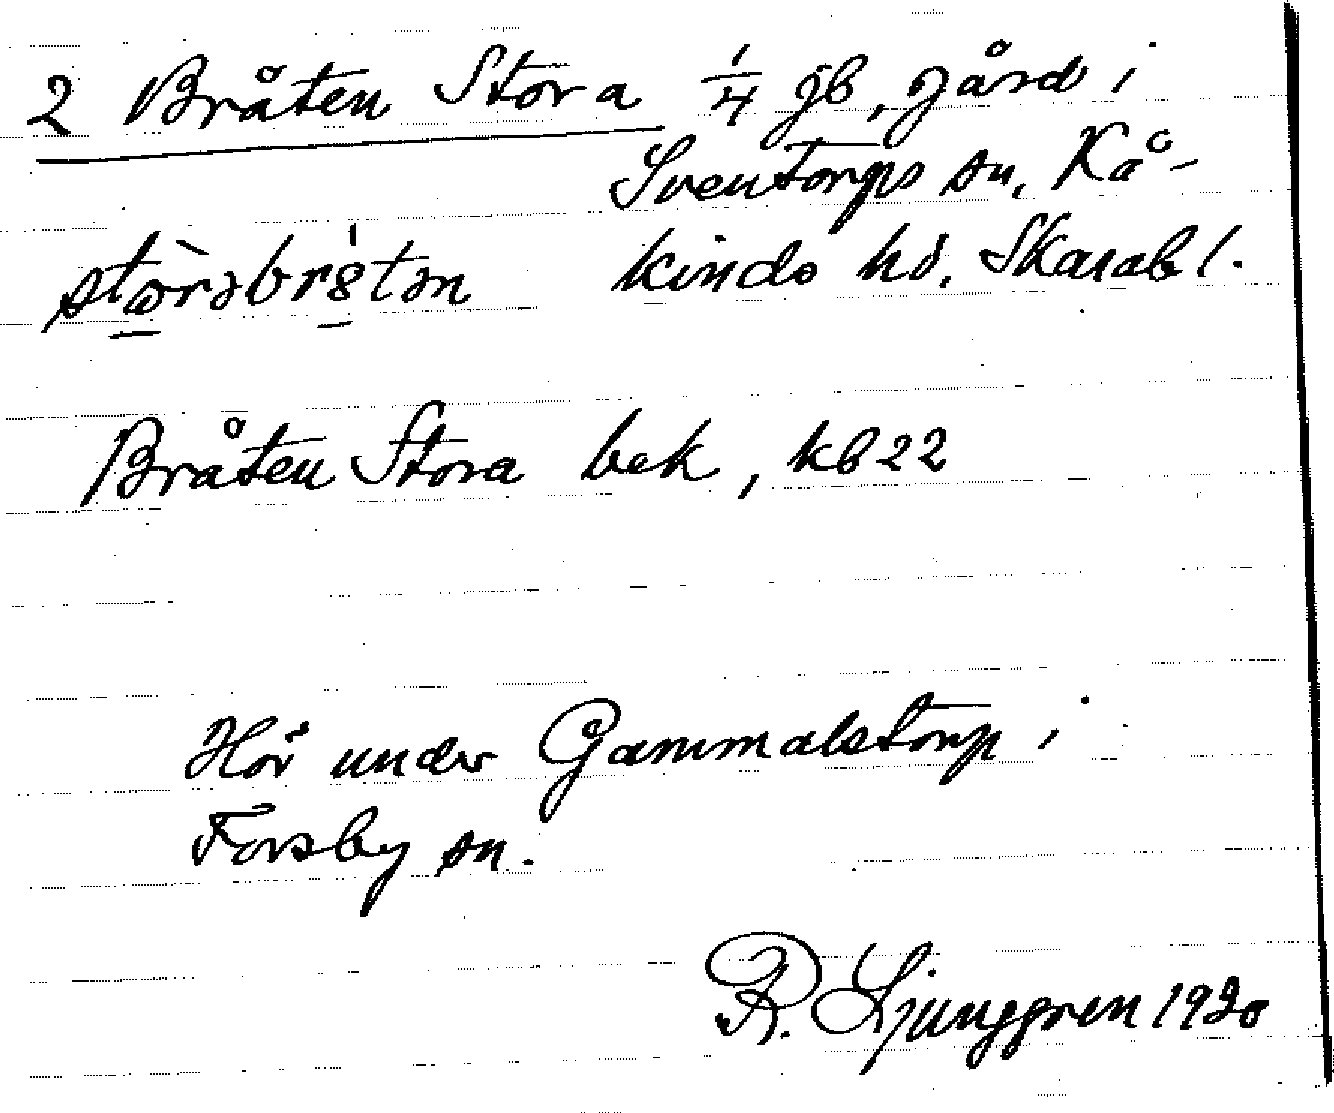 2 Bråten Stora ¼ jb, gård i
Sventorps sn, Kå-
kinds hd, Skarab l.
Bråten Stora bek, kb 22
Hör under Gammalstorp i
Forsby sn.
R. Ljunggren 1920